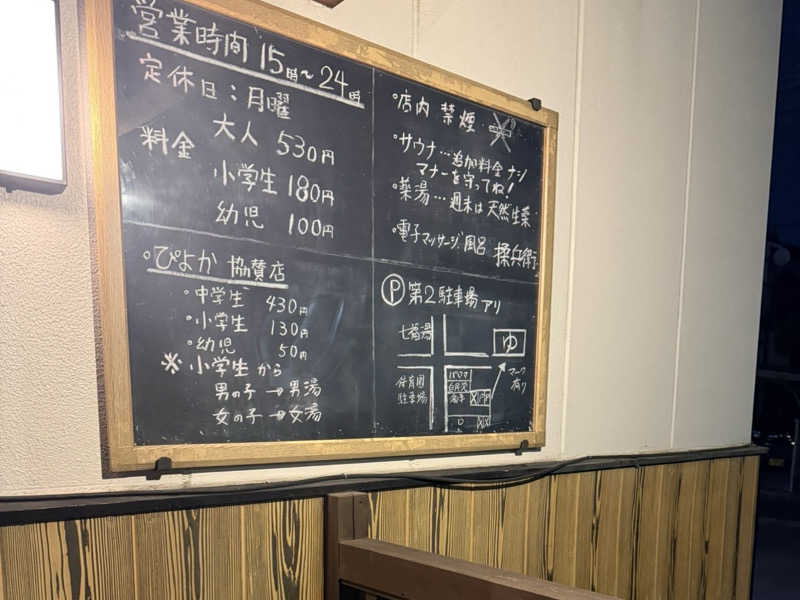 営業時間 15時〜24時
定休日：月曜
料金 大人 530円
小学生 180円
幼児 100円
・ぴよか 協賛店
・中学生 430円
・小学生 130円
・幼児 50円
※小学生から
男の子→男湯
女の子→女湯
・店内 禁煙
・サウナ…追加料金ナシ
マナーを守ってね!
・薬湯…週末は天然生薬
・電子マッサージ風呂 揉兵衛
Ⓟ第2駐車場アリ
七福湯
ゆ
保育園
駐車場
マーク
有り